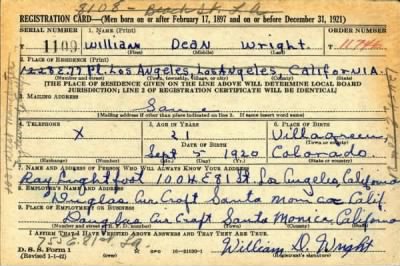 REGISTRATION CARD—(Men born on or after February 17, 1897 and on or before December 31, 1921)
SERIAL NUMBER 1. NAME (Print) ORDER NUMBER
1109 William Dean Wright
(First) (Middle) (Last)
2. PLACE OF RESIDENCE (Print)
Pl. Los Angeles, Los Angeles, California.
(Number and street) (Town, township, village, or city) (County) (State)
[THE PLACE OF RESIDENCE GIVEN ON THE LINE ABOVE WILL DETERMINE LOCAL BOARD
JURISDICTION; LINE 2 OF REGISTRATION CERTIFICATE WILL BE IDENTICAL]
3. MAILING ADDRESS
Same
[Mailing address if other than place indicated on line 2. If same insert word same]
4. TELEPHONE 5. AGE IN YEARS 6. PLACE OF BIRTH
X 21 Villagreen
DATE OF BIRTH (Town or county)
Sept 5 1920 Colorado
(Mo.) (Day) (Yr.) (State or country)
7. NAME AND ADDRESS OF PERSON WHO WILL ALWAYS KNOW YOUR ADDRESS
Ray Lightfoot 1004 E 81 St. Los Angeles, California
8. EMPLOYER'S NAME AND ADDRESS
Douglas Air Craft Santa Monica Calif.
9. PLACE OF EMPLOYMENT OR BUSINESS
Douglas Air Craft Santa Monica, California
I AFFIRM THAT I HAVE VERIFIED ABOVE ANSWERS AND THAT THEY ARE TRUE.
D. S. S. Form 1
(Revised 1-1-42) William D. Wright